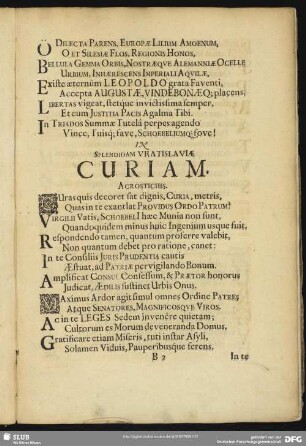 O DILECTA PARENS, EUROPÆ LILIUM AMOENUM,
O ET SILESIÆ FLOS, REGIONIS HONOS,
BELLULA GEMMA ORBIS, NOSTRÆQVE ALEMANNIÆ OCELLE
URBIUM, INHÆRESCENS IMPERIALI AQVILÆ,
Existe æternùm LEOPOLDO grata Faventi,
Accepta AUGUSTÆ, VINDEBONÆQ; placens,
LIBERTAS vigeat, stetque invictissima semper,
Et cum JUSTITIA PACIS Agalma Tibi.
In TRISDOS Summæ Tutelâ perpes agendo
Vince, Iuisq; fave, SCHOEBELICUMQ; fove!
IN
SPLENDIDAM VRATISLAVIÆ
CURIAM.
ACROSTICHIS.
Curas quis decoret sat dignis, CURIA, metris,
Quas in te exantlat PROVIDUS ORDO PATRUM?
VIRGILII Vatis, SCHOEBELI hæc Munia non sunt,
Quandoquidem minus huic Ingenium usque fuit,
Respondendo tamen, quantum proferre valebit,
Non quantum debet pro ratione, canet:
In te Consiliis JURIS PRUDENTIA cautis
Æstuat, ad PATRIÆ pervigilando Bonum.
Amplificat CONSUL Confessum, & PRÆTOR honorus
Judicat, ÆDILIS fustinet Urbis Onus.
Maximus Ardor agit simul omnes Ordine PATRES,
Atque SENATORES, MAGNIFICOSQVE VIROS.
Ac in te LEGES Sedem invenêre quietam;
Cultorum es Morum deveneranda Domus,
Gratificare etiam Miseris, tuti instar Asyli,
Solamen Viduis, Pauperibusque ferens.
B 2 In te
SLUB
Wir führen Wissen.
gefördert von der
Deutschen Forschungsgemeinschaft
DFG